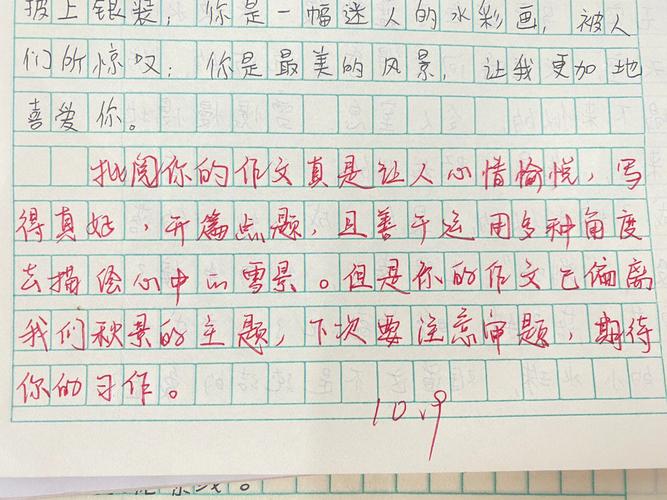 披上银装；你是一幅迷人的水彩画，被人
们所惊叹；你是最美的风景，让我更加地
喜爱你。
批阅你的作文真是让人心情愉悦，写
得真好，开篇点题，且善于运用多种角度
去描绘心中的雪景。但是你的作文已偏离
我们秋景的主题，下次要注意审题，期待
你的习作。
10.9